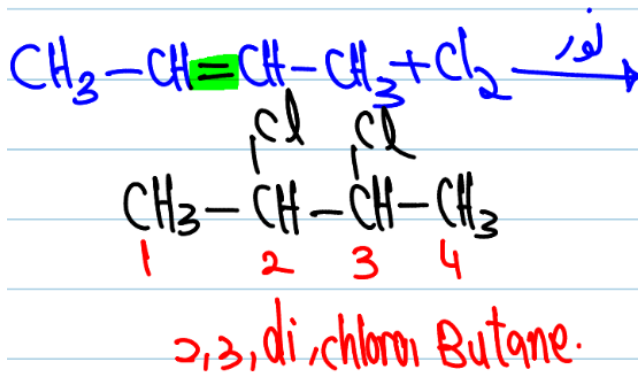 CH₃–CH=CH–CH₃+Cl₂ نور→
Cl Cl
CH₃–CH–CH–CH₃
1 2 3 4
2,3,di,chloro, Butane.